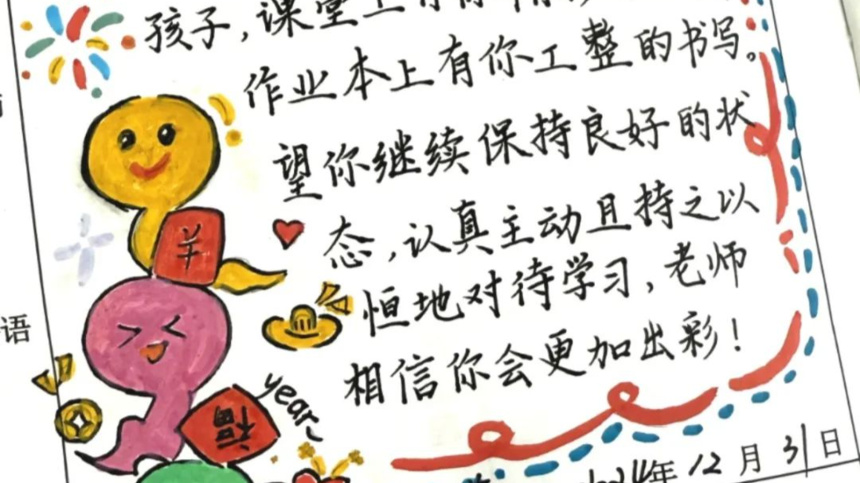 孩子,课堂上有你
作业本上有你工整的书写。
望你继续保持良好的状
态,认真主动且持之以
恒地对待学习,老师
相信你会更加出彩!
年12月31日
语
福
year~